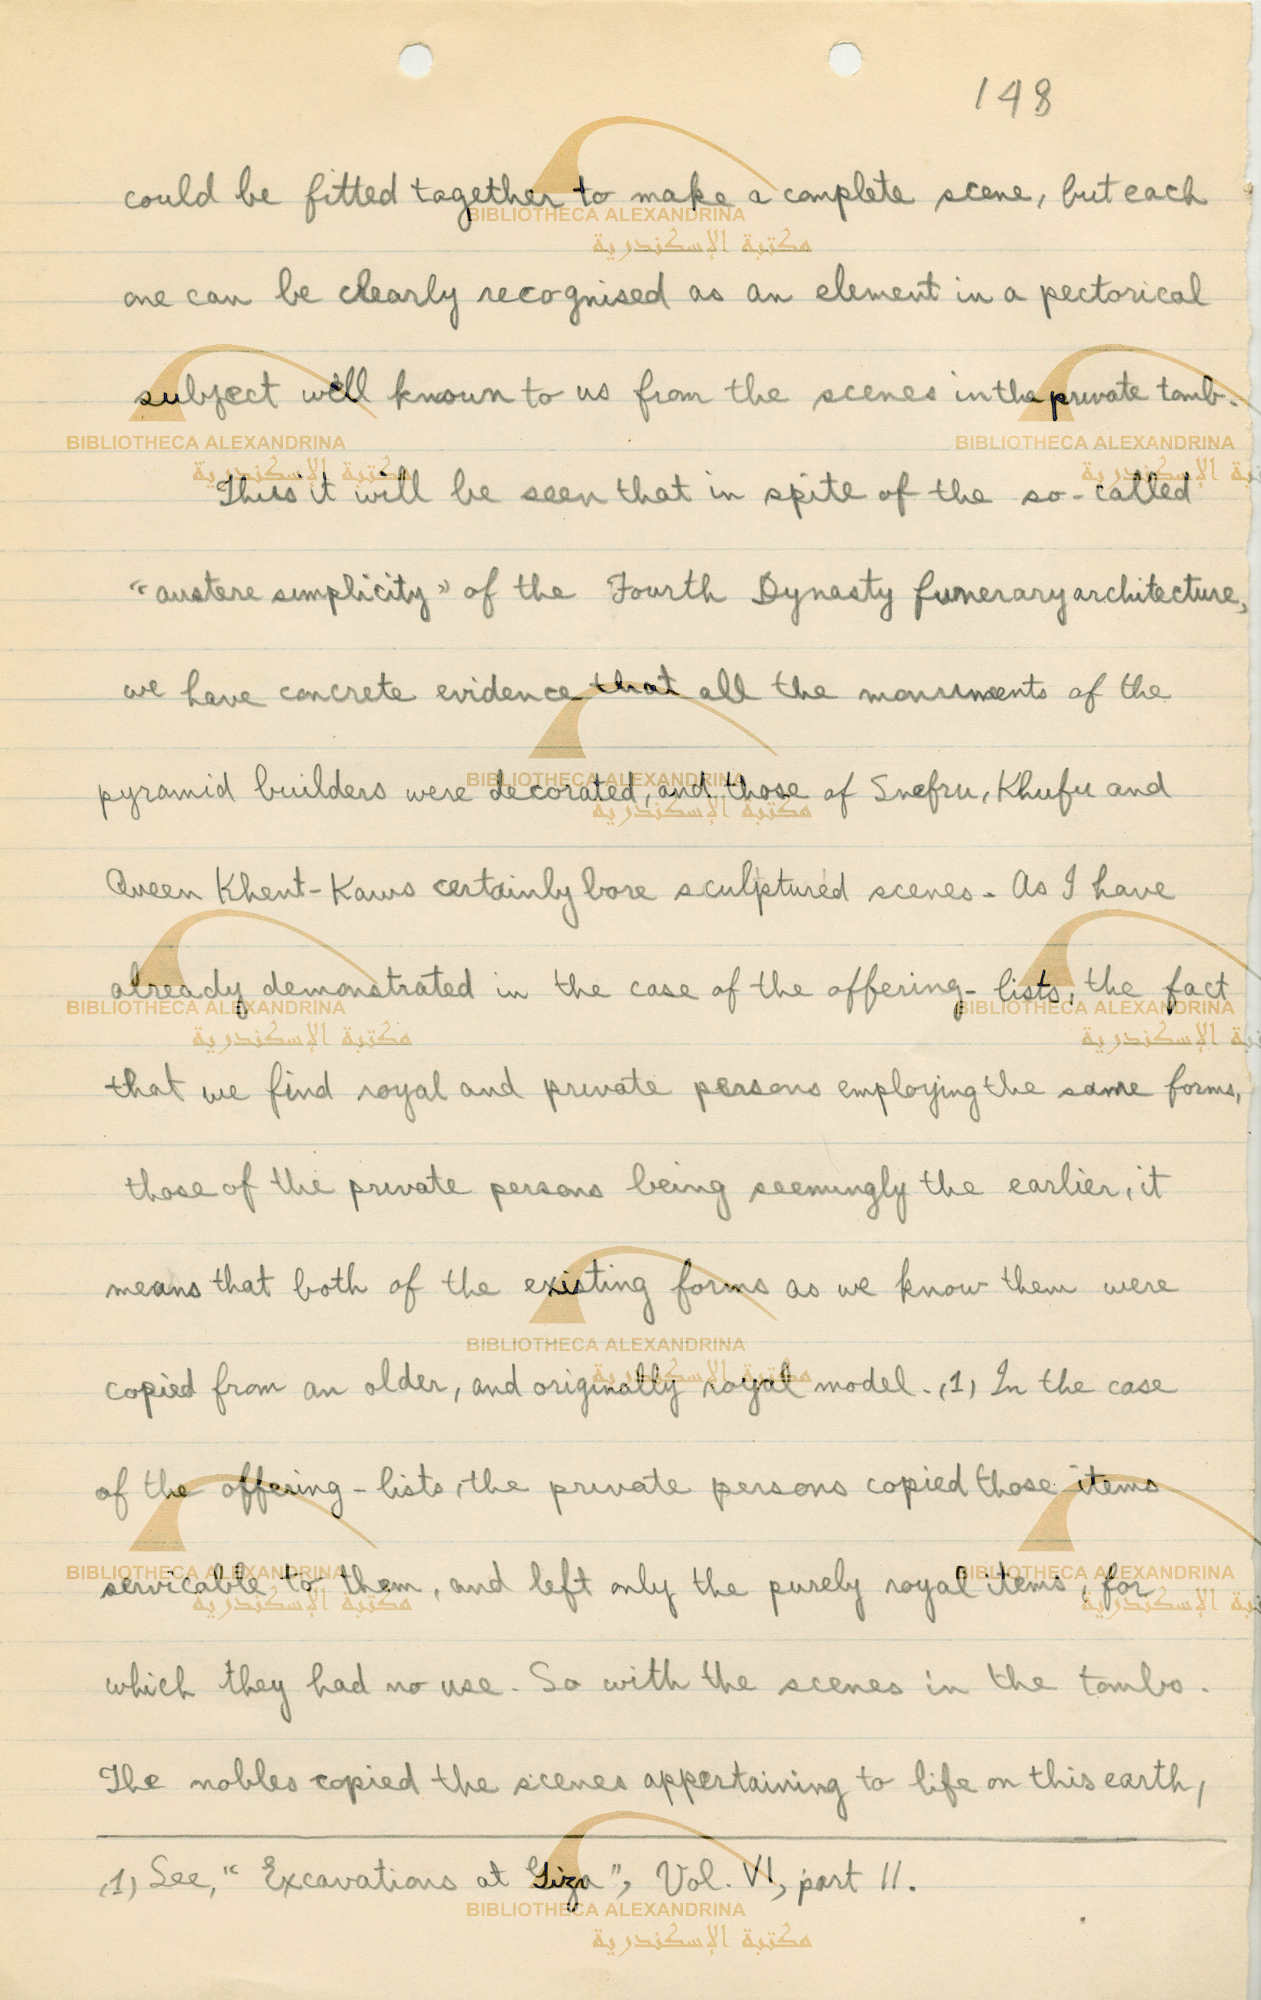 148
could be fitted together to make a complete scene, but each
one can be clearly recognised as an element in a pectorical
subject well known to us from the scenes in the private tomb.
Thus it will be seen that in spite of the so-called
"austere simplicity" of the Fourth Dynasty funerary architecture,
we have concrete evidence that all the monuments of the
pyramid builders were decorated, and those of Snefru, Khufu and
Queen Khent-Kaws certainly bore sculptured scenes. As I have
already demonstrated in the case of the offering-lists, the fact
that we find royal and private persons employing the same forms,
those of the private persons being seemingly the earlier, it
means that both of the existing forms as we know them were
copied from an older, and originally royal model. (1) In the case
of the offering-lists, the private persons copied those items
servicable to them, and left only the purely royal items, for
which they had no use. So with the scenes in the tombs.
The nobles copied the scenes appertaining to life on this earth,
(1) See, "Excavations at Giza", Vol. VI, part II.
BIBLIOTHECA ALEXANDRINA
مكتبة الإسكندرية